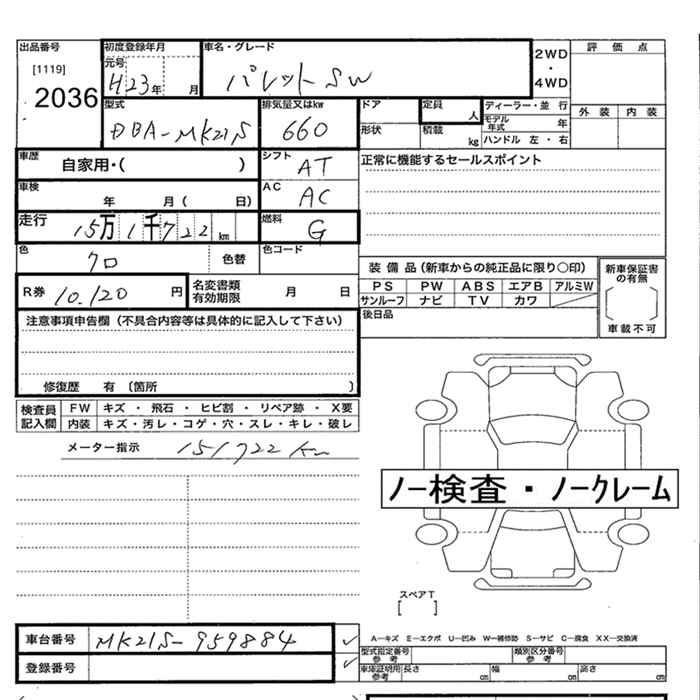 出品番号 初度登録年月 車名・グレード 2WD 評価点
[1119] 元号 ・
2036 H23年 月 パレットSW 4WD 外装 内装
型式 排気量又はkw ドア 定員 人 ディーラー・並 行
DBA-MK21S 660 形状 積載 kg モデル年式 年
ハンドル 左・右
車歴 自家用・( ) シフト AT 正常に機能するセールスポイント
車検 年 月( 日) AC AC
走行 15万1千722km 燃料 G
色 クロ 色替 色コード
装備品(新車からの純正品に限り○印) 新車保証書の有無
R券 10.120 円 名変書類有効期限 月 日 PS PW ABS エアB アルミW
サンルーフ ナビ TV カワ
後日品 車載不可
注意事項申告欄(不具合内容等は具体的に記入して下さい)
修復歴 有 〔箇所 〕
検査員記入欄 FW キズ・飛石・ヒビ割・リペア跡・X要
内装 キズ・汚レ・コゲ・穴・スレ・キレ・破レ
メーター指示 151722km
ノー検査・ノークレーム
スペアT
[ ]
車台番号 MK21S-959884
A―キズ E―エクボ U―凹み W―補修跡 S―サビ C―腐食 XX―交換済
登録番号 型式指定番号 参考 類別区分番号 参考
車庫証明用参考 長さ cm 幅 cm 高さ cm